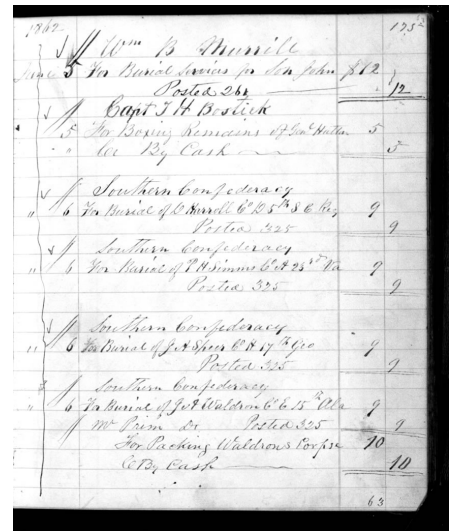 1862 175
√ // Wm B Murrill
June 5 For Burial Services for Son John $12
Posted 264 12
√ // Capt T. H Bostick
" 5 For Boxing Remains of Genl Hatton 5
" " Cr By Cash 5
√ // Southern Confederacy
" 6 For Burial of Harrell Co D 5th S C Reg 9
Posted 325 9
√ // Southern Confederacy
" 6 For Burial of P H Simms Co A 23rd Va 9
Posted 325 9
√ // Southern Confederacy
" 6 For Burial of J A Speer Co H 17th Geo 9
Posted 325 9
// Southern Confederacy
" 6 For Burial of J A Waldron Co E 15th Ala 9
// Mr Prim Dr Posted 325 9
For Packing Waldrons Corpse 10
Cr By Cash 10
63